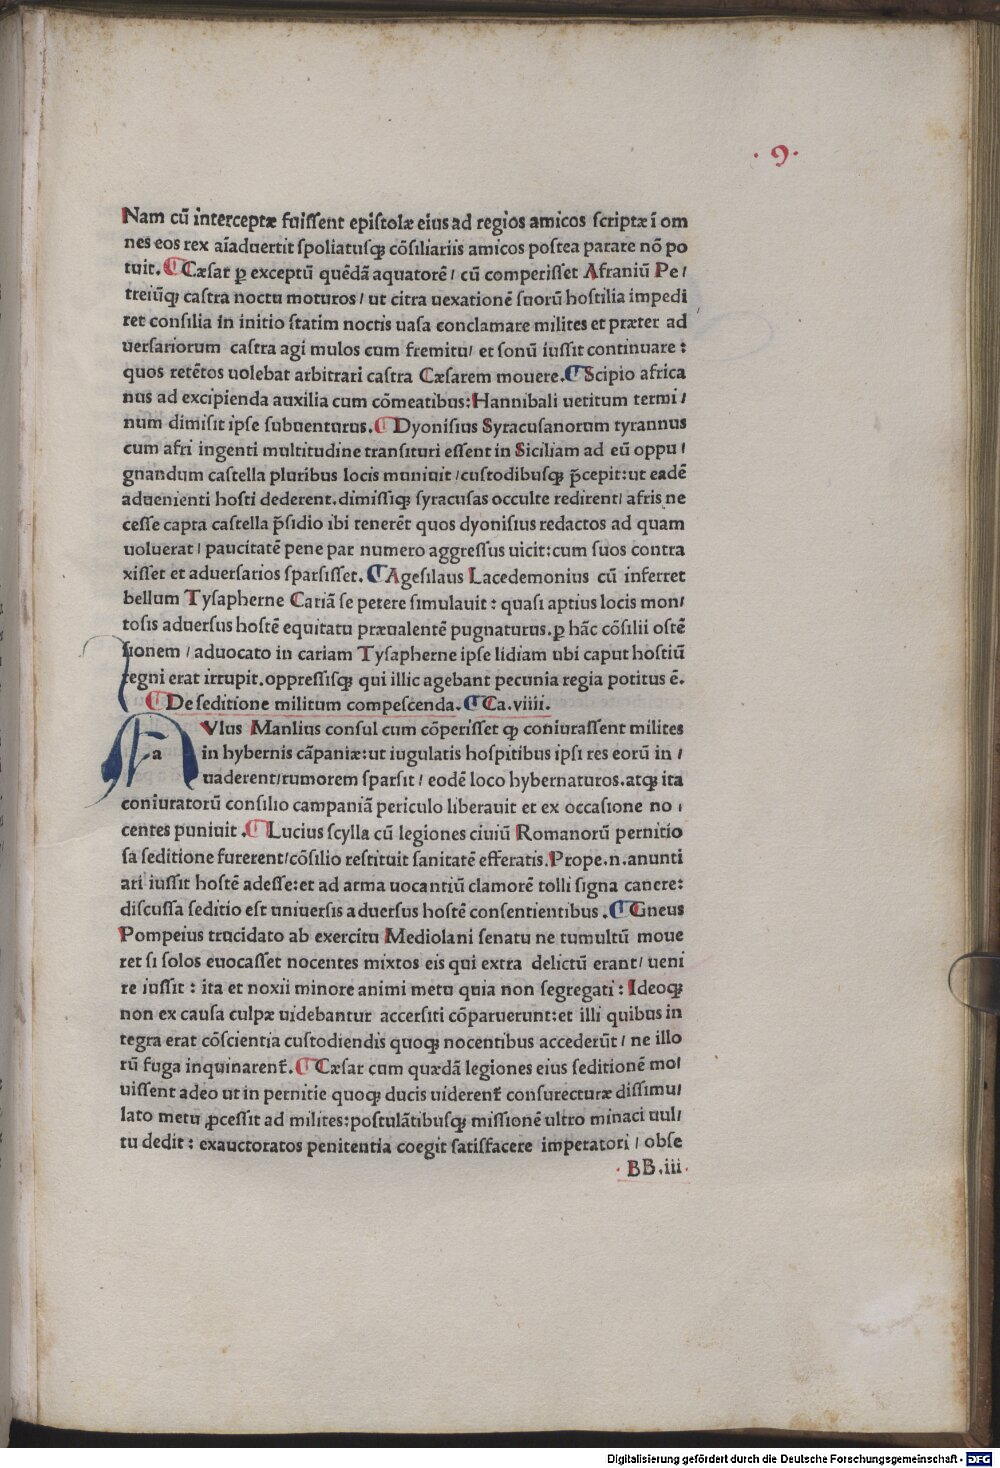 · 9 ·
Nam cū interceptæ fuissent epistolæ eius ad regios amicos scriptæ ī om
nes eos rex aīaduertit spoliatusꝗ cōsiliariis amicos postea parare nō po
tuit. ⸿ Cæsar ꝑ exceptū quēdā aquatorē / cū comperisset Afraniū Pe /
treiūꝗ castra noctu moturos / ut citra uexationē suorū hostilia impedi
ret consilia in initio statim noctis uasa conclamare milites et præter ad
uersariorum castra agi mulos cum fremitu / et sonū iussit continuare :
quos retētos uolebat arbitrari castra Cæsarem mouere. ⸿ Scipio africa
nus ad excipienda auxilia cum cōmeatibus: Hannibali uetitum termi /
num dimisit ipse subuenturus. ⸿ Dyonisius Syracusanorum tyrannus
cum afri ingenti multitudine transituri essent in Siciliam ad eū oppu /
gnandum castella pluribus locis muniuit / custodibusꝗ p̄cepit: ut eadē
aduenienti hosti dederent. dimissiꝗ syracusas occulte redirent / afris ne
cesse capta castella p̄sidio ibi tenerēt quos dyonisius redactos ad quam
uoluerat / paucitatē pene par numero aggressus uicit: cum suos contra
xisset et aduersarios sparsisset. ⸿ Agesilaus Lacedemonius cū inferret
bellum Tysapherne Cariā se petere simulauit : quasi aptius locis mon /
tosis aduersus hostē equitatu præualentē pugnaturus. ꝑ hāc cōsilii ostē
sionem / aduocato in cariam Tysapherne ipse lidiam ubi caput hostiū
regni erat irrupit. oppressisꝗ qui illic agebant pecunia regia potitus ē.
⸿ De seditione militum compescenda. ⸿ Ca. viiii.
a Vlus Manlius consul cum cōperisset ꝙ coniurassent milites
in hybernis cāpaniæ: ut iugulatis hospitibus ipsi res eorū in /
uaderent / rumorem sparsit / eodē loco hybernaturos. atꝗ ita
coniuratorū consilio campaniā periculo liberauit et ex occasione no /
centes puniuit. ⸿ Lucius scylla cū legiones ciuiū Romanorū pernitio
sa seditione furerent / cōsilio restituit sanitatē efferatis. Prope. n. anunti
ari iussit hostē adesse: et ad arma uocantiū clamorē tolli signa canere:
discussa seditio est uniuersis aduersus hostē consentientibus. ⸿ Gneus
Pompeius trucidato ab exercitu Mediolani senatu ne tumultū moue
ret si solos euocasset nocentes mixtos eis qui extra delictū erant / ueni
re iussit : ita et noxii minore animi metu quia non segregati : Ideoꝗ
non ex causa culpæ uidebantur accersiti cōparuerunt: et illi quibus in
tegra erat cōscientia custodiendis quoꝗ nocentibus accederūt / ne illo
rū fuga inquinarent̄. ⸿ Cæsar cum quædā legiones eius seditionē mo /
uissent adeo ut in pernitie quoꝗ ducis uiderent̄ consurecturæ dissimu /
lato metu ꝓcessit ad milites: postulātibusꝗ missionē ultro minaci uul /
tu dedit : exauctoratos penitentia coegit satisfacere imperatori / obse
· BB. iii ·
Digitalisierung gefördert durch die Deutsche Forschungsgemeinschaft - DFG